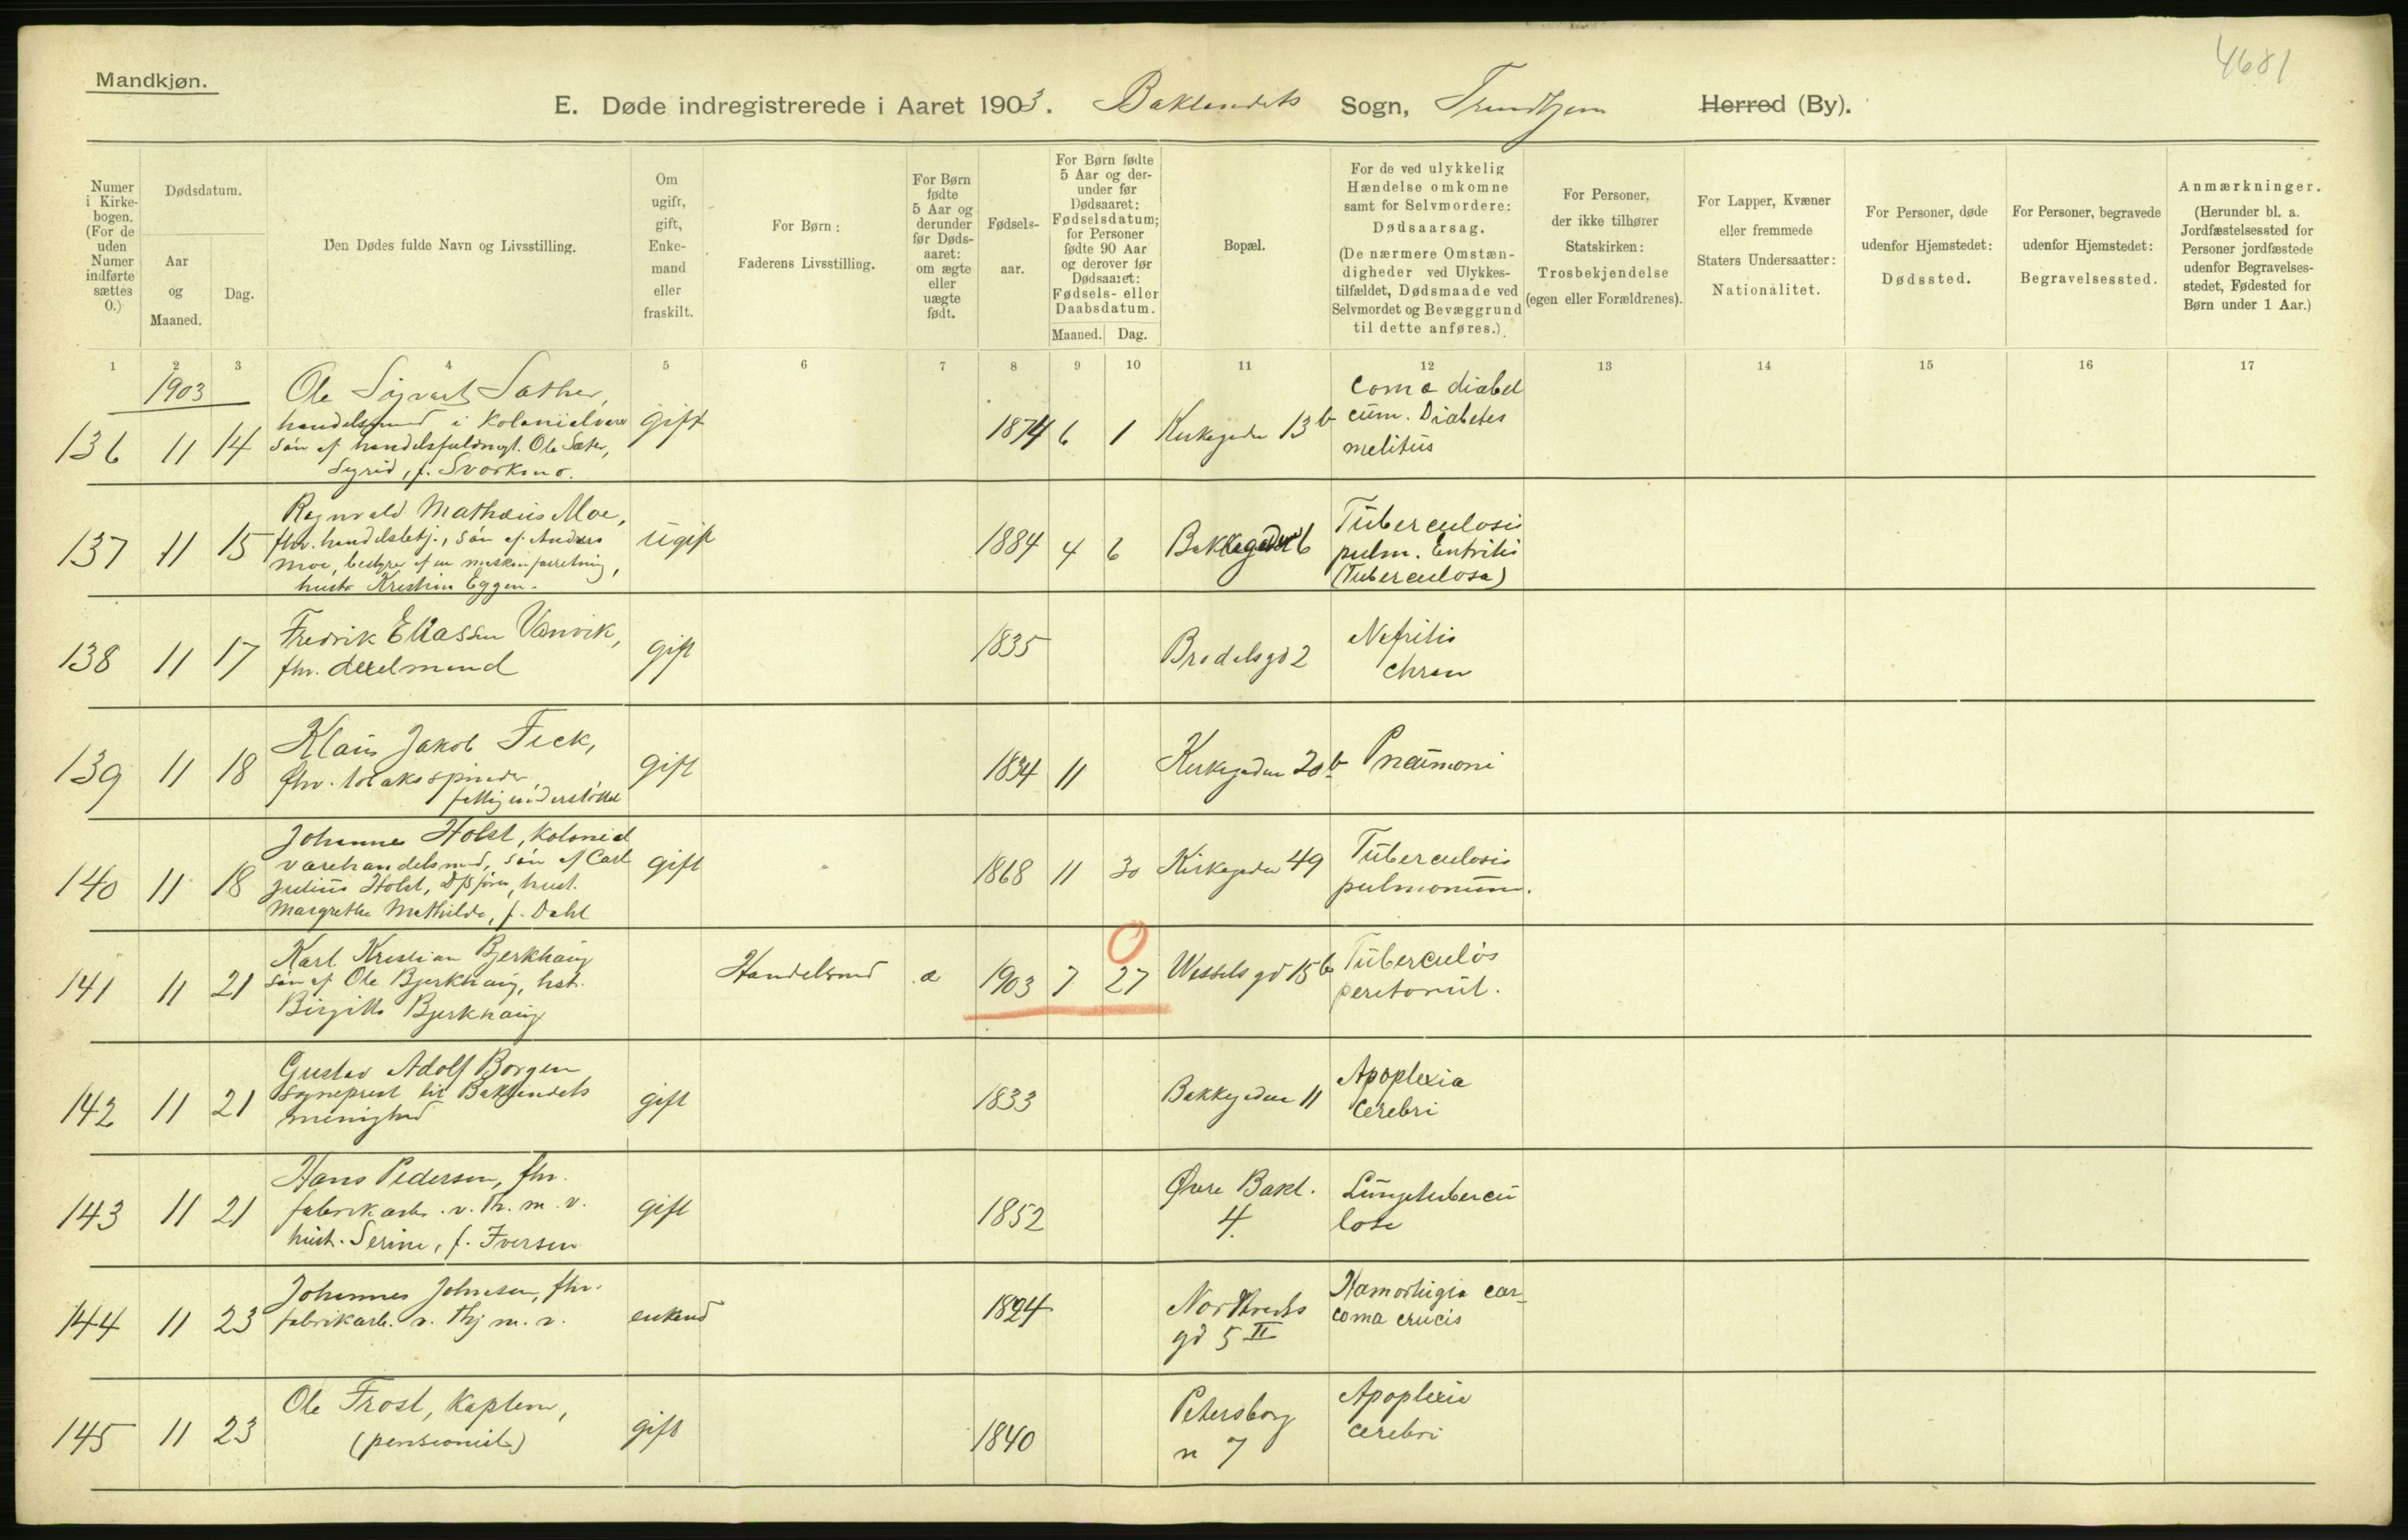 4681
Mandkjøn.
E. Døde indregistrerede i Aaret 1903. Baklandets Sogn, Trondhjem Herred (By).
Numer i Kirkebogen. (For de uden Numer indførte sættes 0.)
Dødsdatum.
Aar og Maaned.
Dag.
Den Dødes fulde Navn og Livsstilling.
Om ugift, gift, Enkemand eller fraskilt.
For Børn:
Faderens Livsstilling.
For Børn fødte 5 Aar og derunder før Dødsaaret: om ægte eller uægte født.
Fødselsaar.
For Børn fødte 5 Aar og derunder før Dødsaaret: Fødselsdatum; for Personer fødte 90 Aar og derover før Dødsaaret: Fødsels- eller Daabsdatum.
Maaned. Dag.
Bopæl.
For de ved ulykkelig Hændelse omkomne samt for Selvmordere: Dødsaarsag.
(De nærmere Omstændigheder ved Ulykkestilfældet, Dødsmaade ved Selvmordet og Bevæggrund til dette anføres.)
For Personer, der ikke tilhører Statskirken: Trosbekjendelse (egen eller Forældrenes).
For Lapper, Kvæner eller fremmede Staters Undersaatter: Nationalitet.
For Personer, døde udenfor Hjemstedet: Dødssted.
For Personer, begravede udenfor Hjemstedet: Begravelsessted.
Anmærkninger.
(Herunder bl. a. Jordfæstelsessted for Personer jordfæstede udenfor Begravelsesstedet, Fødested for Børn under 1 Aar.)
1 2 3 4 5 6 7 8 9 10 11 12 13 14 15 16 17
1903
136 11 14 Ole Sigvart Sather,
handelsmand i kolonialvare
søn af handelsfuldmgt. Ole Sæter,
Sigrid, f. Svorkmo.
gift 1874 6 1 Kirkegaden 13b
Coma diabet
cum. Diabetes
melitus
137 11 15 Ragnvald Mathæus Moe,
fhv. handelsbetj., søn af Anders
Moe, bestyrer af en maskinforretning,
hustr Kristine Eggen.
ugift 1884 4 6 Bakkegaden 6
Tuberculosis
pulm. Entritis
(Tuberculosa)
138 11 17 Fredrik Eliassen Vanvik,
fhv. deelmand
gift 1835 Brodalsgd 2
Nefritis
chron
139 11 18 Klaus Jakob Feck,
fhv. tobaksspinder
fattigunderstøttet
gift 1834 11 Kirkegaden 20b
Pneumoni
140 11 18 Johannes Holst, kolonial
varehandelsmd, søn af Carl
Julius Holst, D/S fører, hust.
Margrethe Mathilde, f. Dahl
gift 1868 11 30 Kirkegaden 49
Tuberculosis
pulmonum.
141 11 21 Karl Kristian Bjerkhaug
søn af Ole Bjerkhaug, hst.
Birgitte Bjerkhaug
Handelsmd æ 1903 7 27 Wessels gd 15b
Tuberculøs
peretonit.
142 11 21 Gustav Adolf Borgen
Sogneprest til Baklandets
menighed
gift 1833 Bakkegaden 11
Apoplexia
cerebri
143 11 21 Hans Pedersen, fhv.
fabrikarb. v. Th. m. v.
hust. Serine, f. Iversen
gift 1852 Øvre Bakl.
4.
Lungetubercu
lose
144 11 23 Johannes Johnsen, fhv.
fabrikarb. v. Thj m. v.
enkemd 1824
gd 5 II
car
coma crucis
145 11 23 Ole Frost, kaptein,
(pensionist)
gift 1840 Petersborg
n 7
Apoplexia
cerebri